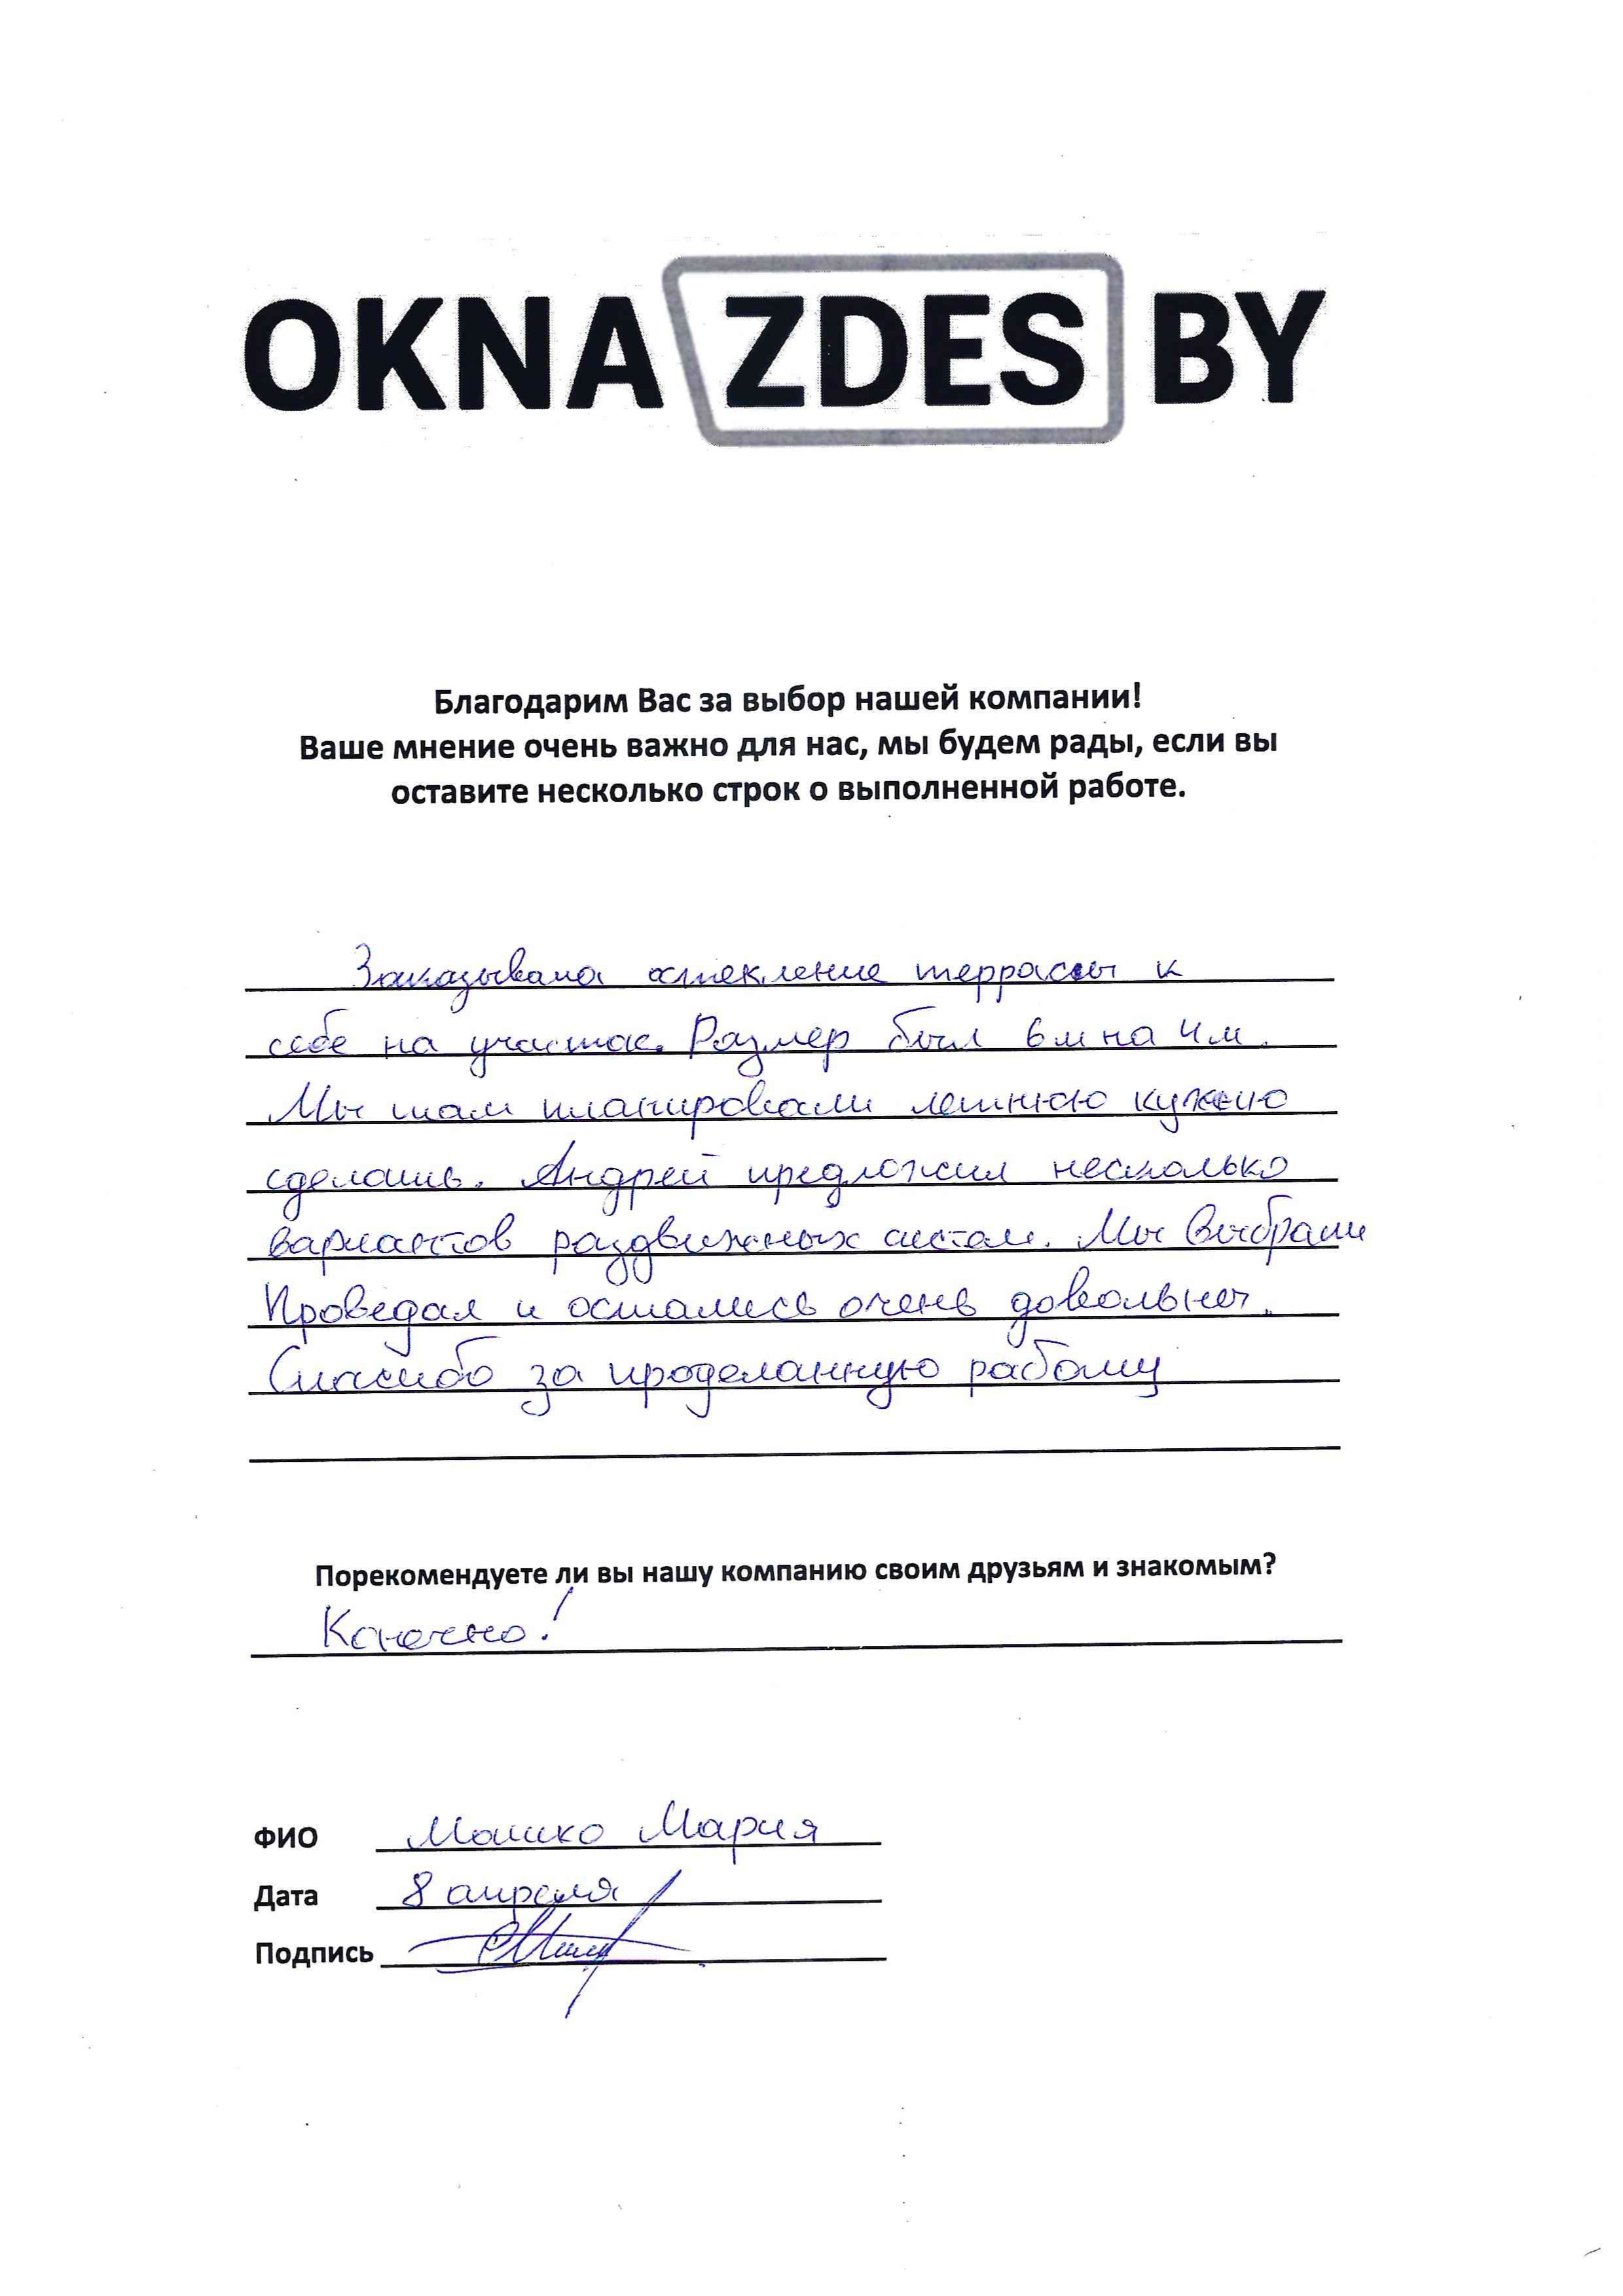 OKNA ZDES BY
Благодарим Вас за выбор нашей компании!
Ваше мнение очень важно для нас, мы будем рады, если вы
оставите несколько строк о выполненной работе.
Заказывала остекление террасы к
себе на участок. Размер был 6м на 4м.
Мы там планировали летнюю кухню
сделать. Андрей предложил несколько
вариантов раздвижных систем. Мы выбрали
Проведал и остались очень довольны.
Спасибо за проделанную работу
Порекомендуете ли вы нашу компанию своим друзьям и знакомым?
Конечно!
ФИО Мария
Дата 8 апреля
Подпись